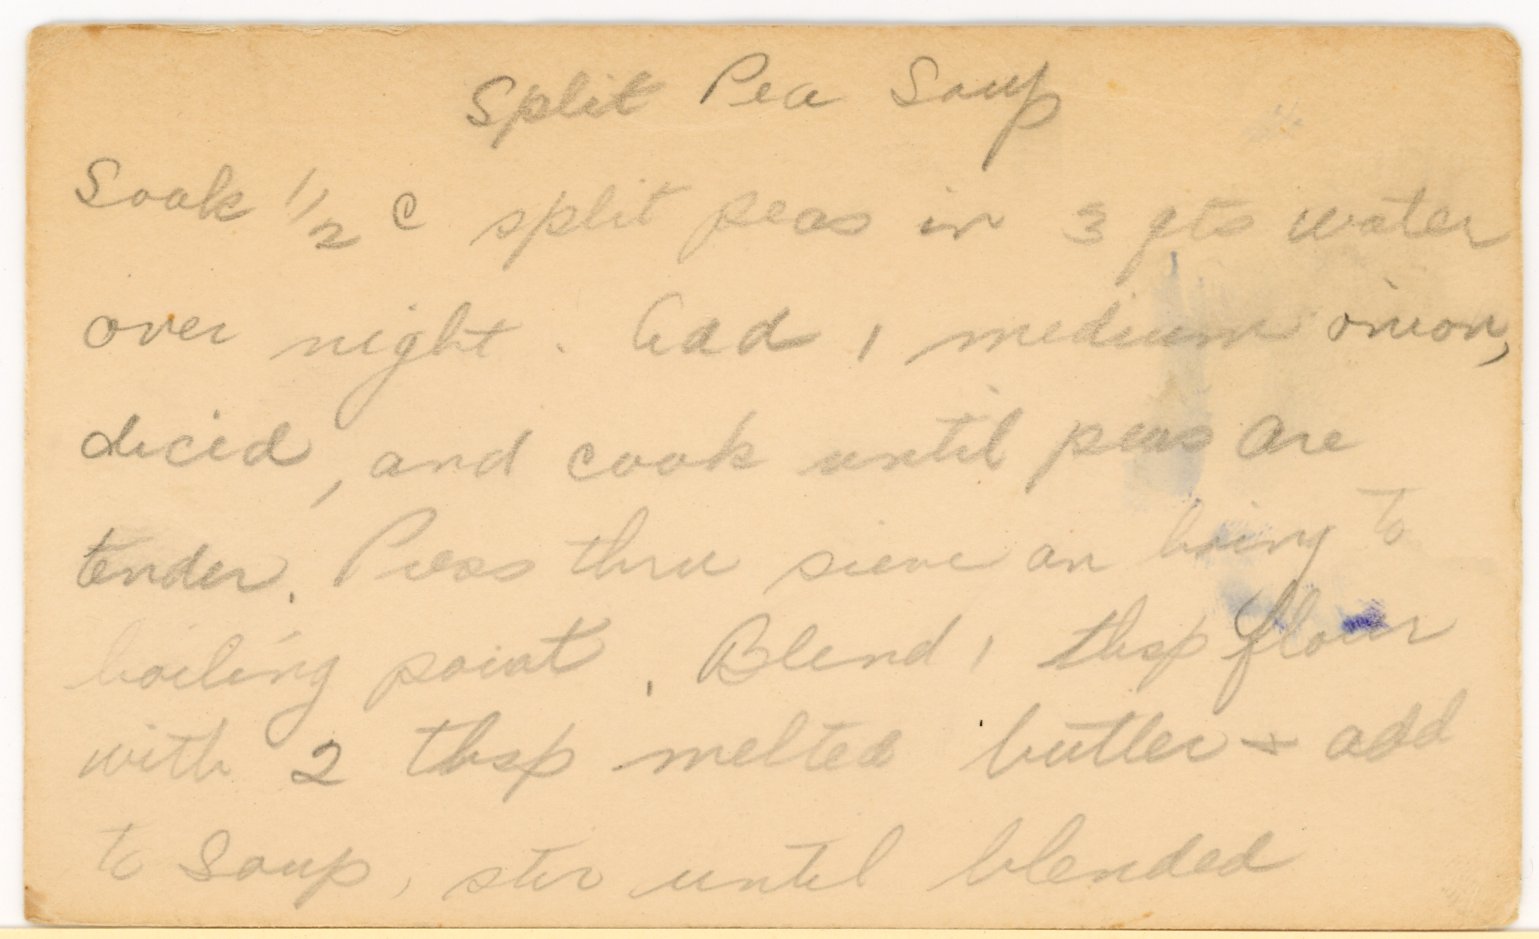 Split Pea Soup
Soak 1/2 c split peas in 3 qts water
over night. Add 1 medium onion,
diced, and cook until peas are
tender. Press thru sieve an bring to
boiling point. Blend 1 tbsp flour
with 2 tbsp melted butter + add
to soup, stir until blended